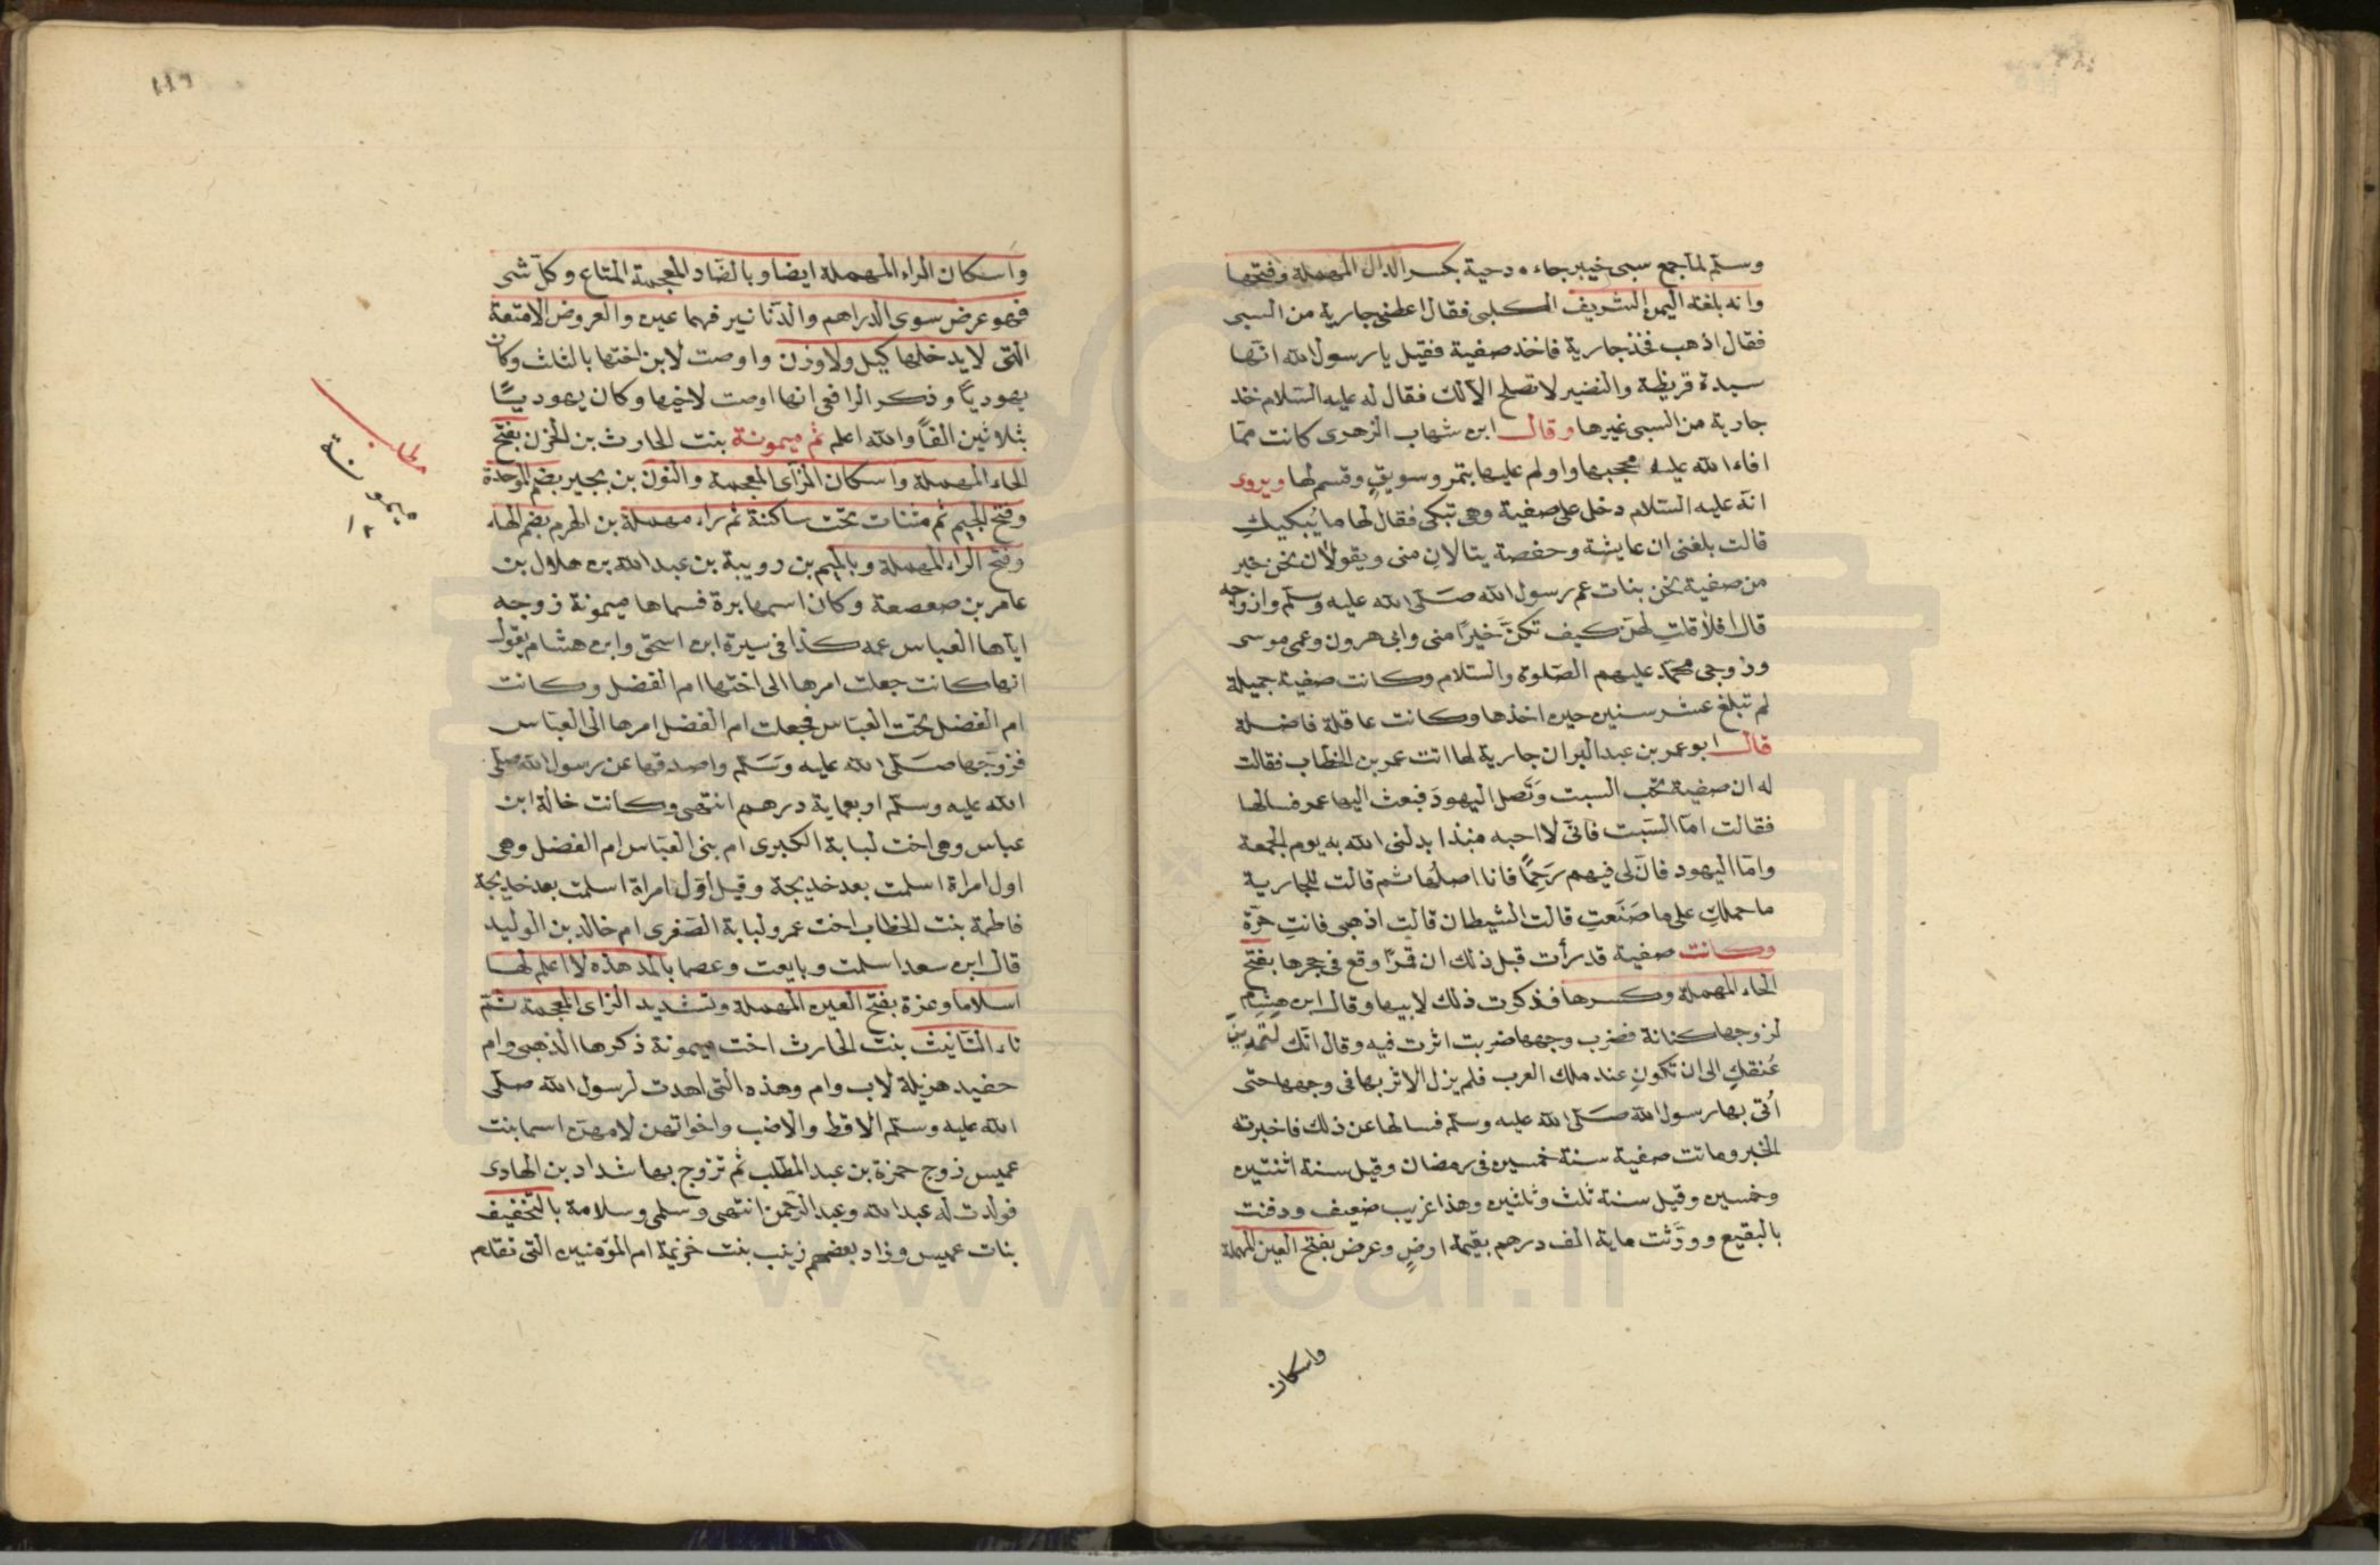 وسلم لما جمع سبى خيبر جاءه دحية بكسر الدال المهملة وفتحها
وانه بلغته اليمن الشريف الكلبى فقال اعطنى جارية من السبى
فقال اذهب فخذ جارية فاخذ صفية فقيل يا رسول الله انها
سيدة قريظة والنضير لا تصلح الا لك فقال له عليه السلام خذ
جارية من السبى غيرها وقال ابن شهاب الزهرى كانت مما
افاء الله عليه فحجبها واولم عليها بتمر وسويق وقسم لها ويروى
انه عليه السلام دخل على صفية وهى تبكى فقال لها ما يُبكيكِ
قالت بلغنى ان عايشة وحفصة ينالان منى ويقولان نحن خير
من صفية نحن بنات عم رسول الله صلى الله عليه وسلم وازواجه
قال افلا قلتِ لهن كيف تكنّ خيرًا منى وابى هرون وعمى موسى
وزوجى محمد عليهم الصلوة والسلام وكانت صفية جميلة
لم تبلغ عشر سنين حين اخذها وكانت عاقلة فاضلة
قال ابو عمر بن عبد البر ان جارية لها اتت عمر بن الخطاب فقالت
له ان صفية تحب السبت وتَصل اليهودَ فبعث اليها عمر فسالها
فقالت امّا السَبت فانّى لا احبه منذ ابدلنى الله به يوم الجمعة
وامّا اليهود فانّ لى فيهم رَحِمًا فانا اصلُها ثم قالت للجارية
ما حملكِ على ما صَنَعتِ قالت الشيطان قالت اذهبى فانتِ حرّة
وكانت صفية قد رأت قبل ذلك ان قمرًا وقع فى حجرها بفتح
الحاء المهملة وكسرها فذكرت ذلك لابيها وقال ابن هِشامٍ
لزوجها كنانة فضرب وجهها ضربت اثرت فيه وقال انّك لَتمدّينَ
عُنقكِ الى ان تكونِ عند ملك العرب فلم يزل الاثر بها فى وجهها حتى
اُتى بها رسول الله صلى الله عليه وسلم فسالها عن ذلك فاخبرته
الخبر وماتت صفية سنة خمسين فى رمضان وقيل سنة اثنتين
وخمسين وقيل سنة ثلث وثلثين وهذا غريب ضعيف ودفنت
بالبقيع وورّثت ماية الف درهم بقيمة ارضٍ وعرض بفتح العين المهملة
واسكان
١١٦
واسكان الراء المهملة ايضا وبالضاد المعجمة المتاع وكل شى
فهو عرض سوى الدراهم والدنانير فهما عين والعروض الامتعة
التى لا يدخلها كيل ولا وزن واوصت لابن اختها بالثلث وكان
يهوديًا وذكر الرافعى انها اوصت لاخيها وكان يهوديًّا
بثلاثين الفًا والله اعلم ثم ميمونة بنت الحارث بن الحزن بفتح
الحاء المهملة واسكان الزاى المعجمة والنون بن بجير بضم الموحدة
وفتح الجيم ثم مثنات تحت ساكنة ثم راء مهملة بن الهرم بضم الهاء
وفتح الراء المهملة وبالميم بن رويبة بن عبد الله بن هلال بن
عامر بن صعصعة وكان اسمها برة فسماها ميمونة زوجه
اياها العباس عمه كذا فى سيرة ابن اسحق وابن هشام يقول
انها كانت جعلت امرها الى اختها ام الفضل وكانت
ام الفضل تحت العباس فجعلت ام الفضل امرها الى العباس
فزوجها صلى الله عليه وسلم واصدقها عن رسول الله صلى
الله عليه وسلم اربعماية درهم انتهى وكانت خالة ابن
عباس وهى اخت لبابة الكبرى ام بنى العباس ام الفضل وهى
اول امراة اسلمت بعد خديجة وقيل اول امراة اسلمت بعد خديجة
فاطمة بنت الخطاب اخت عمر ولبابة الصغرى ام خالد بن الوليد
قال ابن سعد اسلمت وبايعت وعصما بالمد هذه لا اعلم لها
اسلاما وعزة بفتح العين المهملة وتشديد الزاى المعجمة ثم
تاء التانيث بنت الحارث اخت ميمونة ذكرها الذهبى وام
حفيد هزيلة لاب وام وهذه التى اهدت لرسول الله صلى
الله عليه وسلم الاقط والاضب واخواتهن لامهن اسما بنت
عميس زوج حمزة بن عبد المطلب ثم تزوج بها شداد بن الهادى
فولدت له عبد الله وعبد الرحمن انتهى وسلمى وسلامة بالتخفيف
بنات عميس وزاد بعضهم زينب بنت خزيمة ام المؤمنين التى تقدم
مطلب
ميمونة
١٢